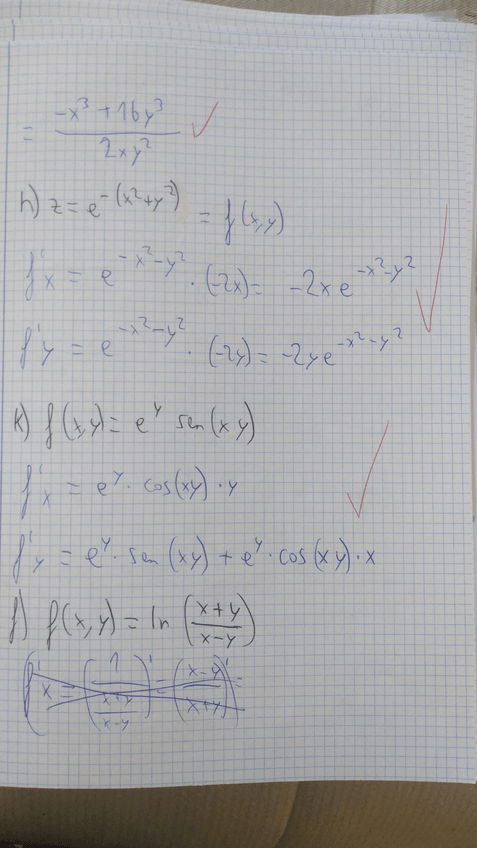 = (-x³ + 16y³)/(2xy²)
h) z = e^-(x²+y²) = f(x,y)
f'x = e^(-x²-y²) · (-2x) = -2x e^(-x²-y²)
f'y = e^(-x²-y²) · (-2y) = -2y e^(-x²-y²)
k) f(x,y) = e^y sen(xy)
f'x = e^y · cos(xy) · y
f'y = e^y · sen(xy) + e^y · cos(xy) · x
f) f(x,y) = ln((x+y)/(x-y))
f'x = (1/((x+y)/(x-y)))' = ((x-y)/(x+y))' =